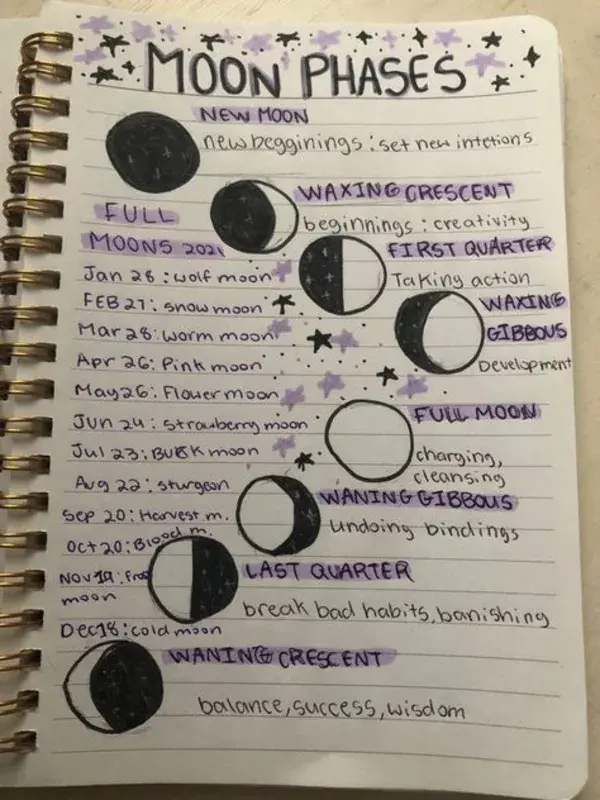 MOON PHASES
NEW MOON
new begginings : set new intetions
WAXING CRESCENT
beginnings : creativity
FIRST QUARTER
Taking action
WAXING
GIBBOUS
Development
FULL MOON
charging,
cleansing
WANING GIBBOUS
undoing bindings
LAST QUARTER
break bad habits, banishing
WANING CRESCENT
balance, success, wisdom
FULL
MOONS 2021
Jan 28 : wolf moon
FEB 27 : snow moon
Mar 28 : worm moon
Apr 26 : Pink moon
May 26 : Flower moon
Jun 24 : strawberry moon
Jul 23 : BUCK moon
Aug 22 : sturgeon
Sep 20 : Harvest m.
Oct 20 : Blood m.
Nov 19 :
moon
Dec 18 : cold moon